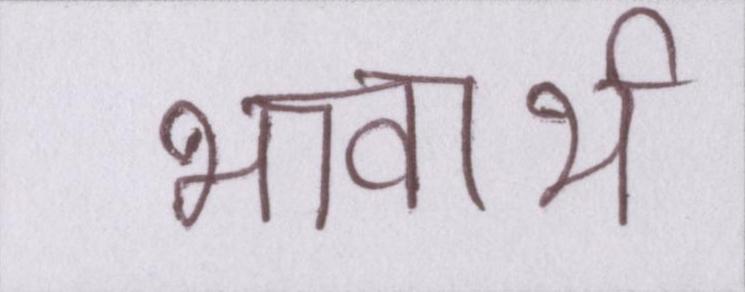 भावार्थ